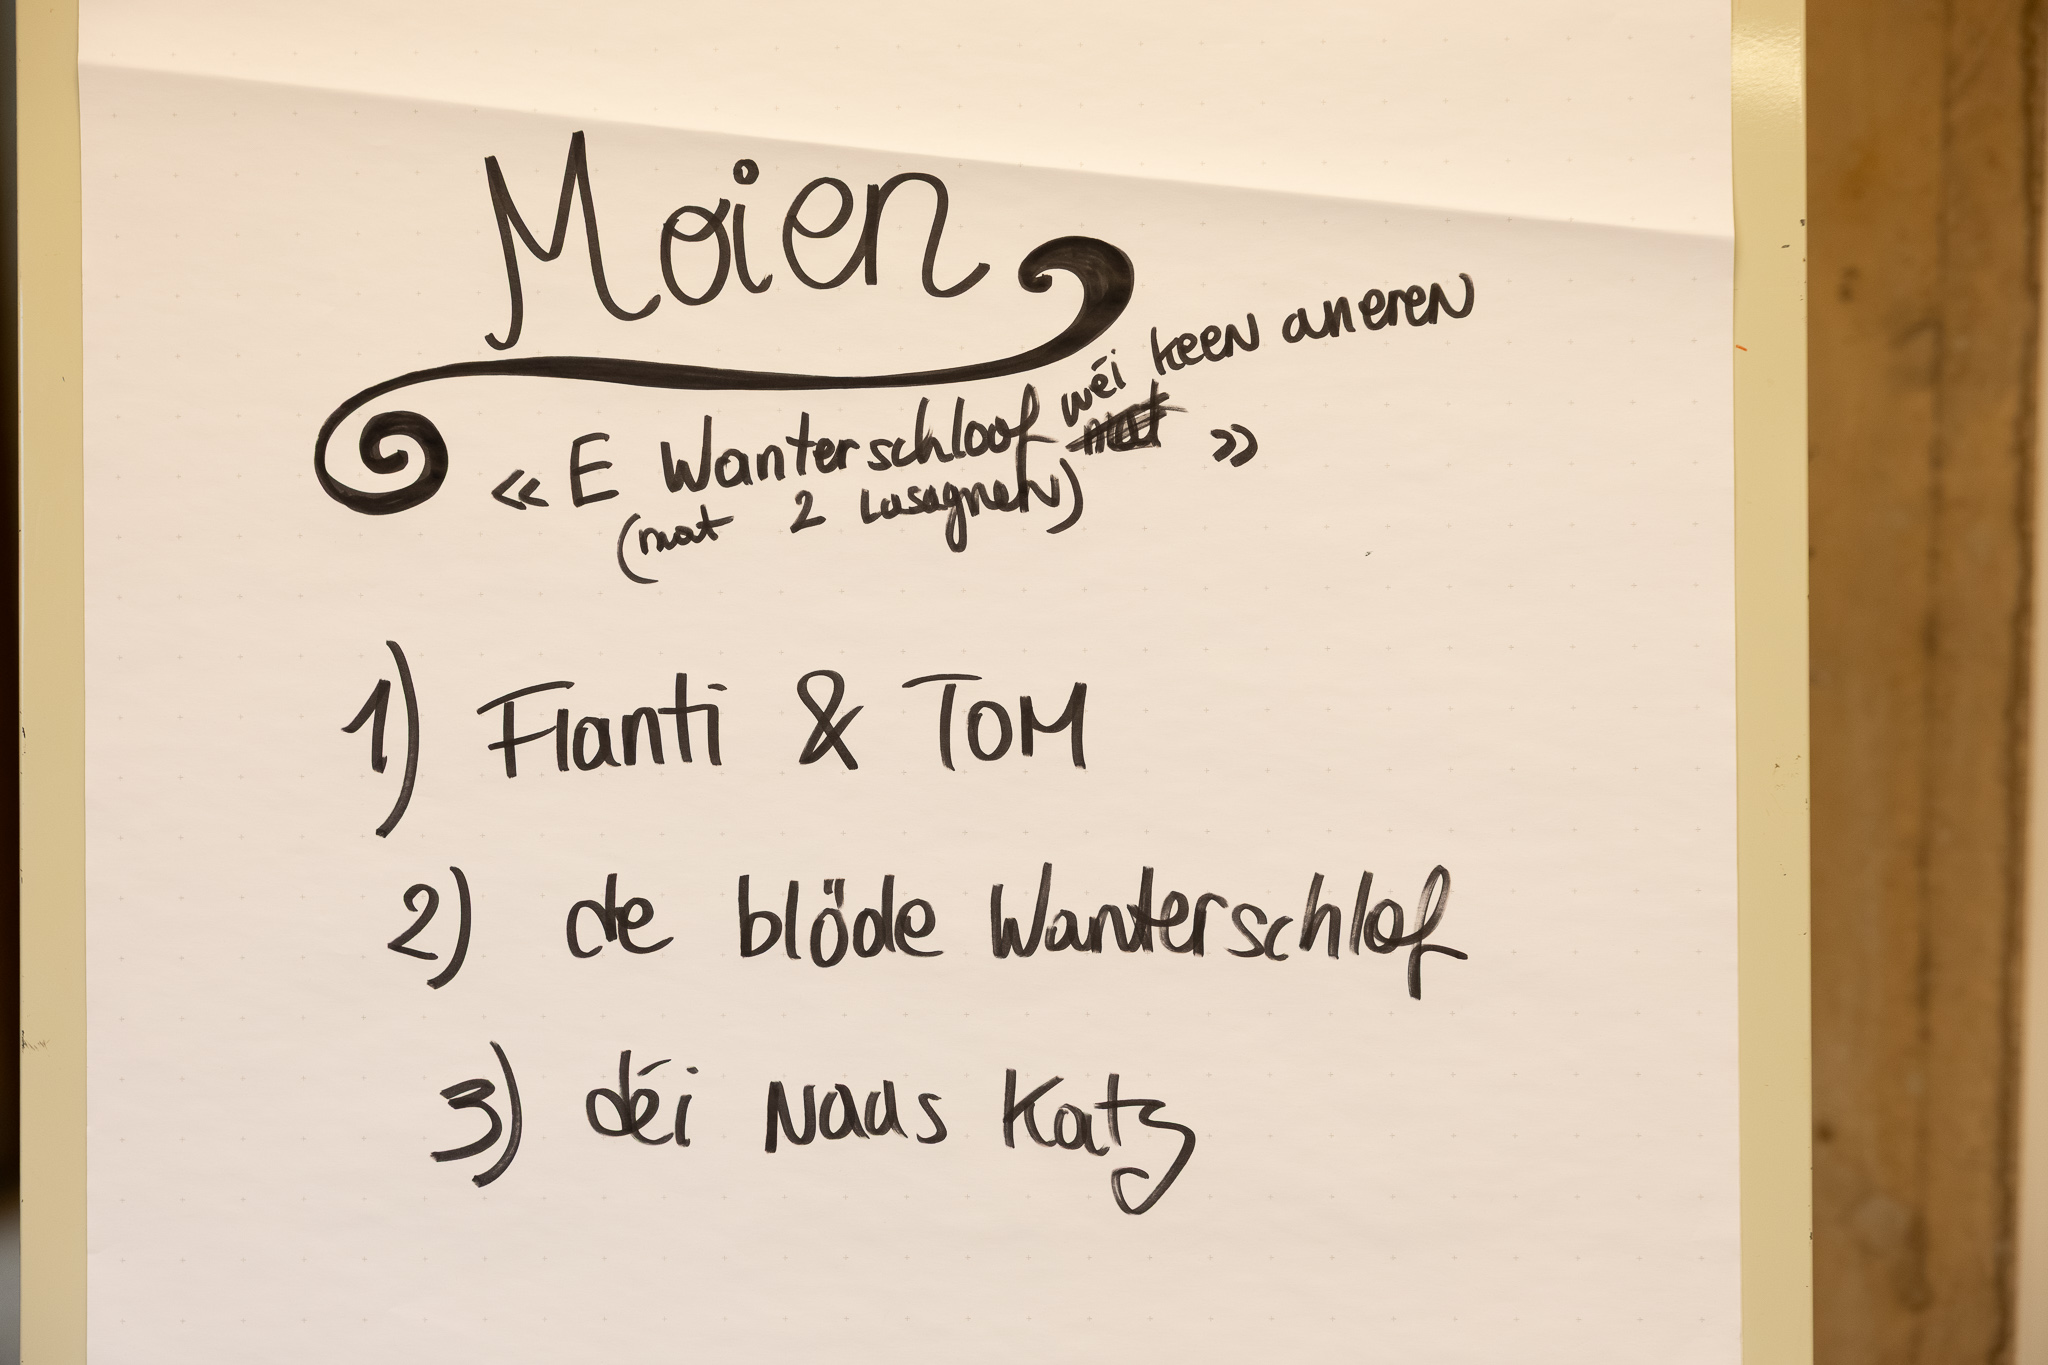 Moien
« E Wanterschloof wéi keen aneren »
(mat 2 Lasagnen)
1) Flanti & TOM
2) de blöde Wanterschlof
3) déi Naas Katz